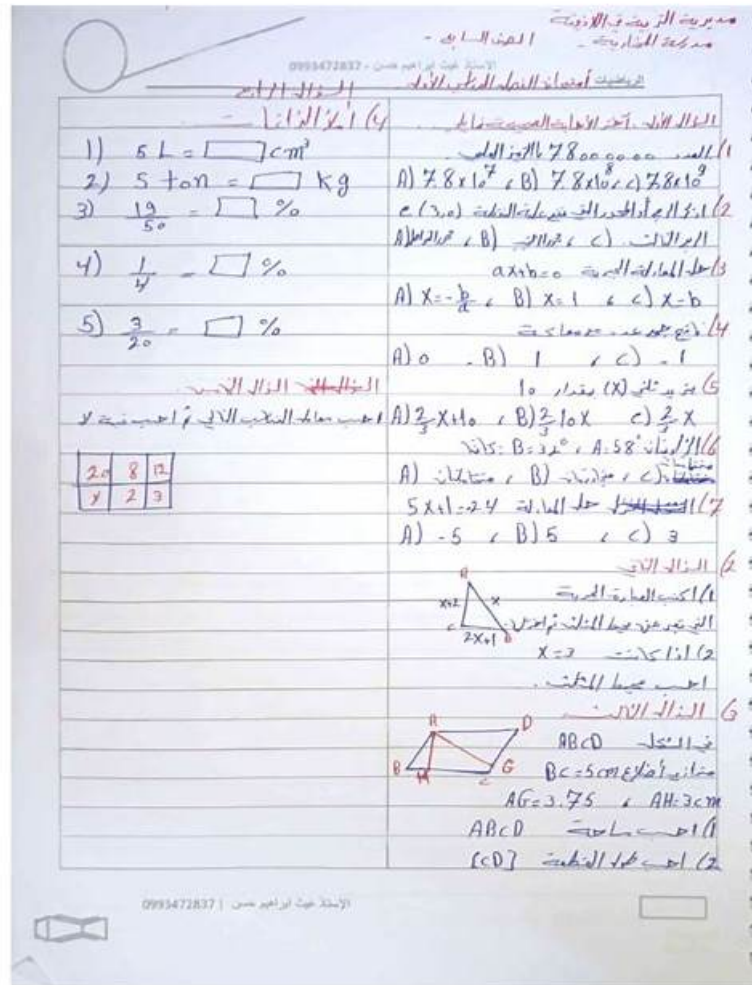 مديرية التربية في اللاذقية
مدرسة الهنارية - الصف السابع -
الأستاذ غيث ابراهيم حسن - 0993472837
الرياضيات امتحان الفصل الدراسي الأول
السؤال الأول: اختر الإجابة الصحيحة مما يلي
1/ العدد 780000000 بالترميز العلمي
A) 7.8x10^7 , B) 7.8x10^8 , c) 7.8x10^9
2/ الربع أو المحور الذي تقع عليه النقطة (3,0)
الربع الثالث (c ,
3/ حل المعادلة الجبرية ax+b=0
A) x=-b/a , B) x=1 , c) x=b
4/ ناتج جمع عددين متعاكسين
A) 0 . B) 1 , c) -1
5/ يزيد ثلثي (x) بمقدار 10
A) 2/3 x+10 , B) 2/3 10x c) 2/3 x
6/ الزاويتان A=58° , B=32° كانتا:
A) متتامتان , B) متوازيتان , c)
7/ حل المعادلة 5x+1=-24
A) -5 , B) 5 , c) 3
2/ السؤال الثاني
1/ اكتب العبارة الجبرية
التي تعبر عن محيط المثلث ثم اختزل
A
x+2 x
C 2x+1 B
2) اذا كانت x=3
احسب محيط المثلث .
السؤال الثالث
في الشكل ABCD
متوازي أضلاع BC=5cm
AG=3.75 , AH=3cm
A D
B H C G
1) احسب مساحة ABCD
2) احسب طول القطعة [CD]
السؤال الرابع
4) املأ الفراغات
1) 5 L = cm³
2) 5 ton = kg
3) 19/50 = %
4) 1/4 = %
5) 3/20 = %
السؤال الخامس
احسب معامل التناسب التالي ثم احسب قيمة y
20 8 12
y 2 3
الأستاذ غيث ابراهيم حسن | 0993472837